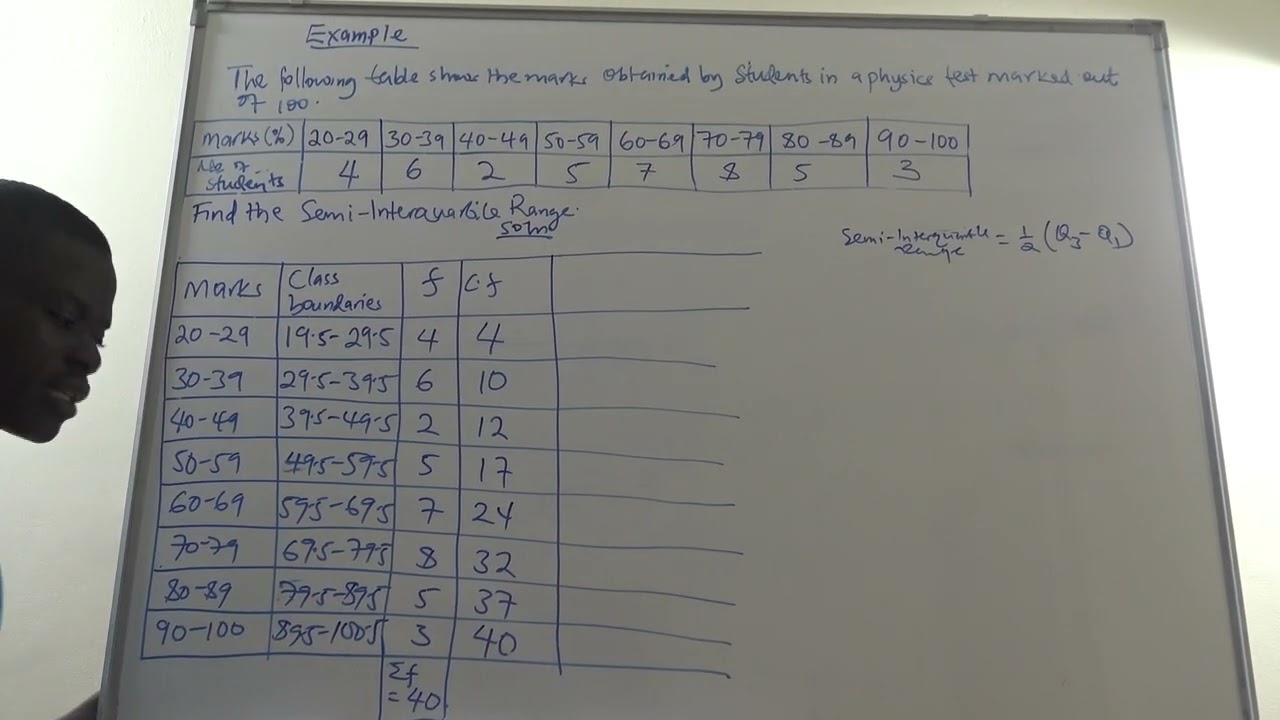 Example
The following table shows the marks obtained by students in a physics test marked out
of 100.
marks (%) 20-29 30-39 40-49 50-59 60-69 70-79 80-89 90-100
No of students 4 6 2 5 7 8 5 3
Find the Semi-Interquartile Range.
soln
Semi-Interquartile Range = 1/2 (Q3 - Q1)
Marks Class boundaries f C.f
20-29 19.5-29.5 4 4
30-39 29.5-39.5 6 10
40-49 39.5-49.5 2 12
50-59 49.5-59.5 5 17
60-69 59.5-69.5 7 24
70-79 69.5-79.5 8 32
80-89 79.5-89.5 5 37
90-100 89.5-100.5 3 40
Σf
= 40